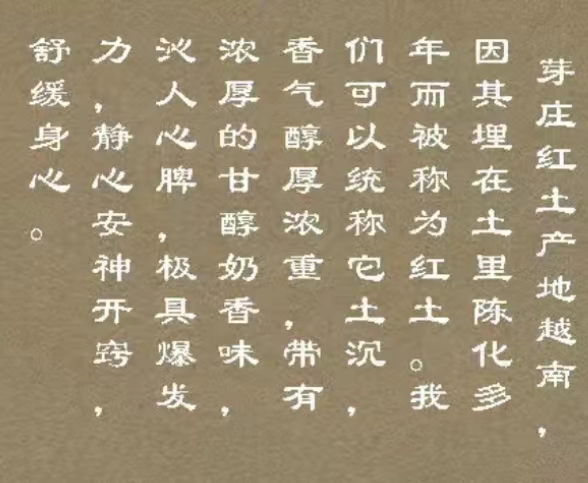 芽庄红土产地越南，
因其埋在土里陈化多
年而被称为红土。我
们可以统称它土沉，
香气醇厚浓重，带有
浓厚的甘醇奶香味，
沁人心脾，极具爆发
力，静心安神开窍，
舒缓身心。